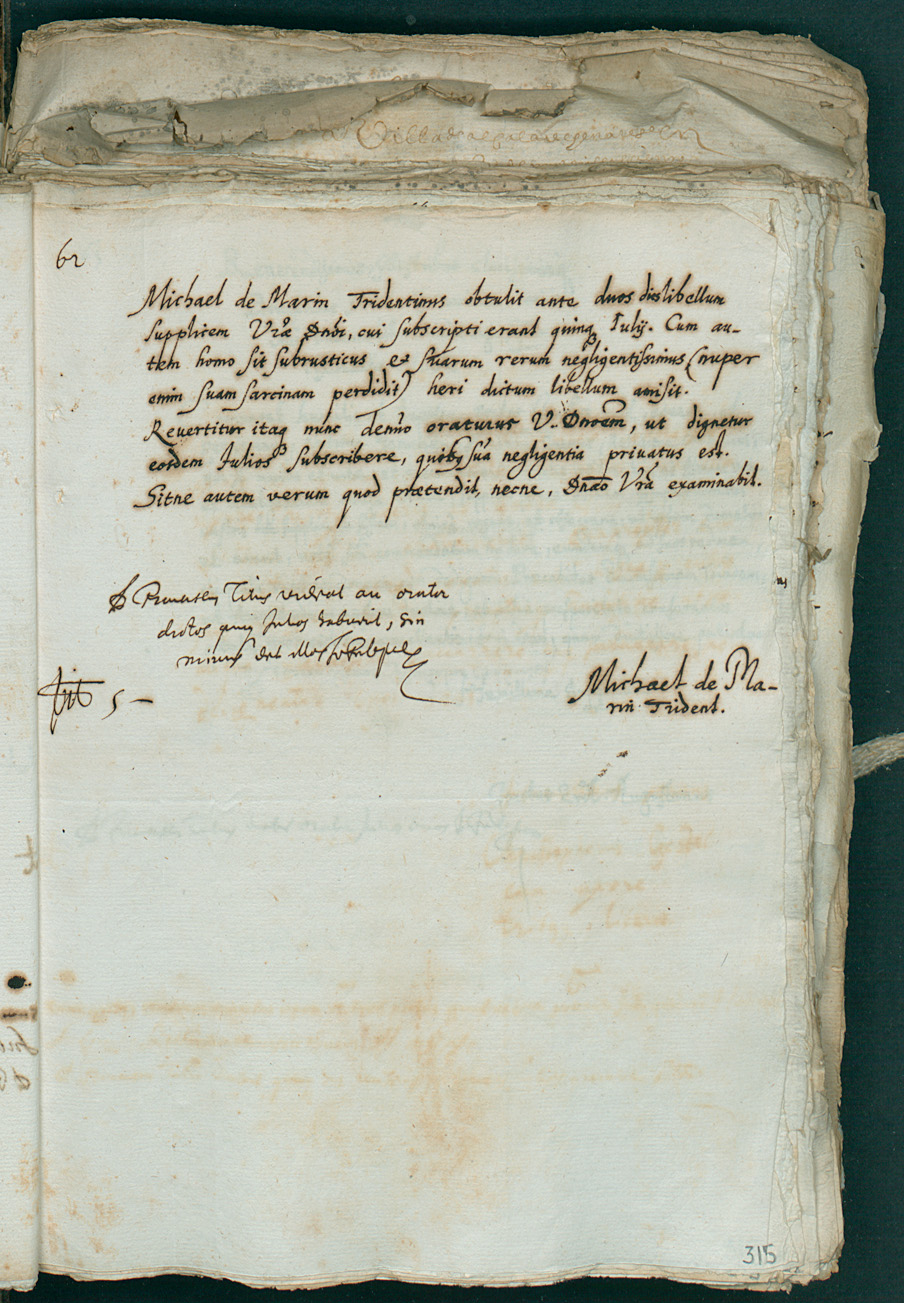 62
Michael de Marin Tridentinus obtulit ante duos dies libellum
supplicem Vrae Dnōi, cui subscripti erant quinq Iulij. Cum au-
tem homo sit subrusticus et suarum rerum negligentissimus (nuper
enim suam sarcinam perdidit) heri dictum libellum amisit.
Revertitur itaq nunc denuo oraturus V. Dnōem, ut dignetur
eosdem Julios subscribere, quibus suā negligentia privatus est.
Sitne autem verum quod praetendit, necne, Dnāo Vrā examinabit.
Titus an orator
dictos quinq Julos habuerit, sin
minus det
5 —
Michael de Ma-
rin Trident.
315